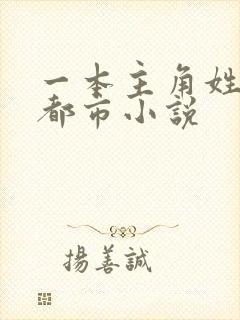 一本主角姓
都市小說
揚善誠